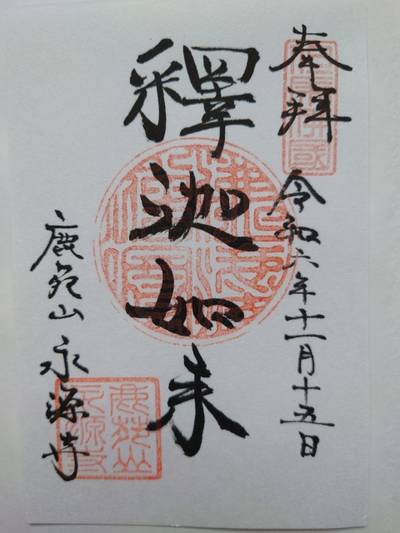 奉拝
令和六年十一月十五日
釋迦如来
鹿苑山 永源寺
鹿苑山永源寺